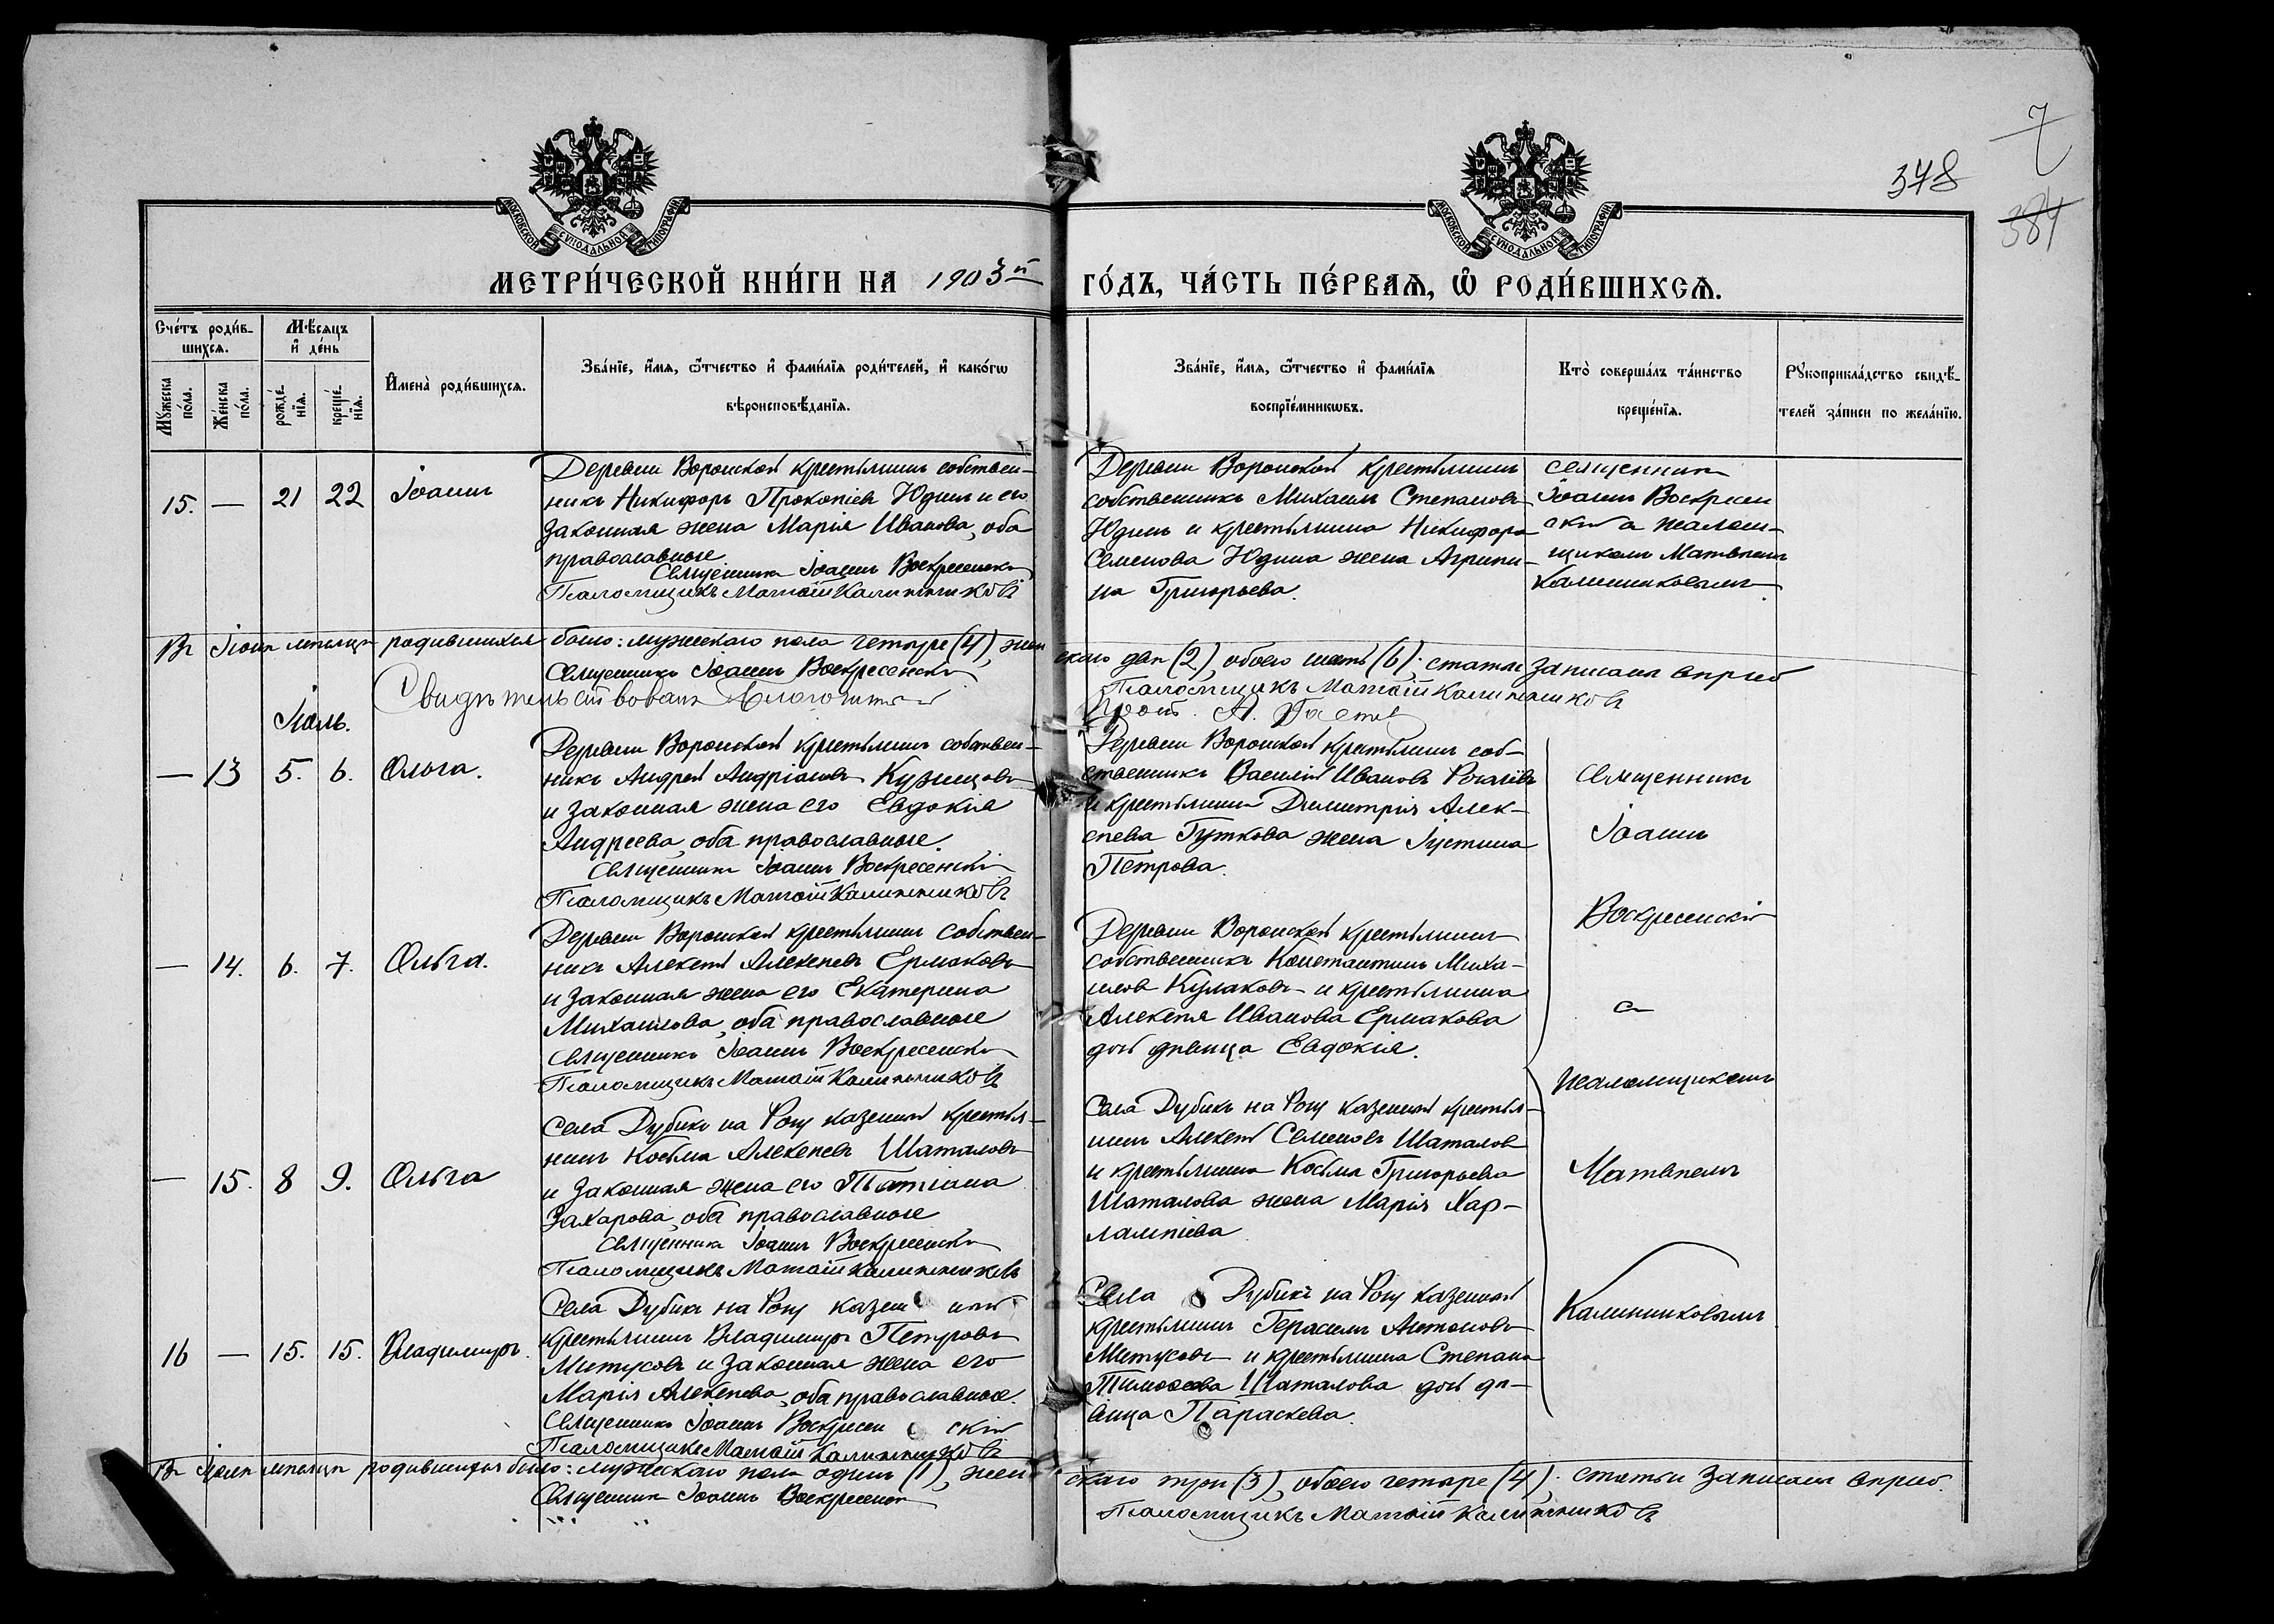 7
378
384
МОСКОВСКОЙ СѴНОДАЛЬНОЙ ТИПОГРАФІИ
МОСКОВСКОЙ СѴНОДАЛЬНОЙ ТИПОГРАФІИ
МЕТРИ́ЧЕСКОЙ КНИ́ГИ НА 1903й ГО́ДЪ, ЧА́СТЬ ПЕ́РВАѦ, Ѡ҆ РОДИ́ВШИХСѦ.
Сче́тъ роди́в-
шихсѧ.
Мꙋ́жеска по́ла.
Же́нска по́ла.
Мѣ́сѧцъ и҆ де́нь
рожде́-
нїѧ.
креще́-
нїѧ.
И҆мена̀ роди́вшихсѧ.
Зва́нїе, и҆́мѧ, ѻ҆́тчество и҆ фами́лїѧ роди́телей, и҆ како́гѡ
вѣроисповѣ́данїѧ.
Зва́нїе, и҆́мѧ, ѻ҆́тчество и҆ фами́лїѧ
воспрїе́мникѡвъ.
Кто̀ соверша́лъ та́инство
креще́нїѧ.
Рꙋкоприкла́дство свидѣ́-
телей за́писи по жела́нїю.
15. — 21 22 Іоаннъ
Деревни Воронской крестьянинъ собствен-
никъ Никифоръ Прокопіевъ Юдинъ и его
законная жена Марія Иванова, оба
православные
Священникъ Іоаннъ Воскресенскій
Псаломщикъ Матѳій Калинниковъ
Деревни Воронской крестьянинъ
собственникъ Михаилъ Степановъ
Юдинъ и крестьянина Никифора
Семенова Юдина жена Агрипи-
на Григорьева.
Священникъ
Іоаннъ Воскресен
скій съ псалом-
щикомъ Матвѣемъ
Калинниковымъ.
Въ Іюнѣ мѣсяцѣ родившихся было: мужескаго пола четыре (4), жен
скаго двѣ (2), обоего шесть (6). статьи записаны вѣрно
Священникъ Іоаннъ Воскресенскій
Псаломщикъ Матѳій Калинниковъ
Свидѣтельствовалъ Благочинный
Прот. А.
Іюль.
— 13 5. 6. Ольга.
Деревни Воронской крестьянинъ собствен-
никъ Андрей Андріановъ Кузнецовъ
и законная жена его Евдокія
Андреева, оба православные.
Священникъ Іоаннъ Воскресенскій
Псаломщикъ Матѳій Калинниковъ
Деревни Воронской крестьянинъ соб-
ственникъ Василій Ивановъ Рогачевъ
и крестьянина Димитрія Алек-
сѣева Гуткова жена Іустина
Петрова.
Священникъ
Іоаннъ
Воскресенскій
съ
псаломщикомъ
Матвѣемъ
Калинниковымъ
— 14. 6. 7. Ольга.
Деревни Воронской крестьянинъ собствен-
никъ Алексѣй Алексѣевъ Ермаковъ
и законная жена его Екатерина
Михаилова, оба православные
Священникъ Іоаннъ Воскресенскій
Псаломщикъ Матѳій Калинниковъ
Деревни Воронской крестьянинъ
собственникъ Константинъ Миха-
иловъ Кулаковъ и крестьянина
Алексѣя Иванова Ермакова
дочь дѣвица Евдокія.
— 15. 8 9. Ольга
Села Дубикъ на Рогу казенный крестья-
нинъ Косьма Алексѣевъ Шаталовъ
и законная жена его Татіана
Захарова, оба православные
Священникъ Іоаннъ Воскресенскій
Псаломщикъ Матѳій Калинниковъ
Села Дубикъ на Рогу казенный крестья-
нинъ Алексѣй Семеновъ Шаталовъ
и крестьянина Косьма Григорьева
Шаталова жена Марія Хар-
лампіева
16 — 15. 15. Владимиръ.
Села Дубикъ на Рогу казен ный
крестьянинъ Владимиръ Петровъ
Митусовъ и законная жена его
Марія Алексѣева, оба православные.
Священникъ Іоаннъ Воскресен скій
Псаломщикъ Матѳій Калинниковъ
Села Дубикъ на Рогу казенный
крестьянинъ Герасимъ Антоновъ
Митусовъ и крестьянина Степана
Тимоѳеева Шаталова дочь дѣ-
вица Параскева.
Въ Іюлѣ мѣсяцѣ родившихся было: мужескаго пола одинъ (1), жен
скаго три (3), обоего четыре (4). статьи записаны вѣрно.
Священникъ Іоаннъ Воскресенскій
Псаломщикъ Матѳій Калинниковъ